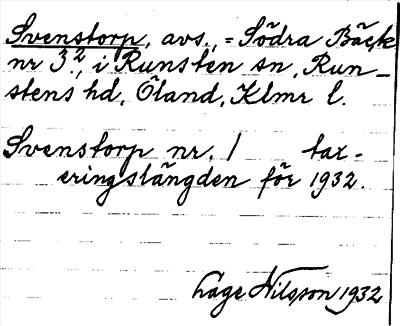 Svenstorp, avs., = Södra Bäck
nr 3², i Runsten sn, Run-
stens hd, Öland, Klmr l.
Svenstorp nr. 1 tax-
eringslängden för 1932.
Lage Nilsson 1932